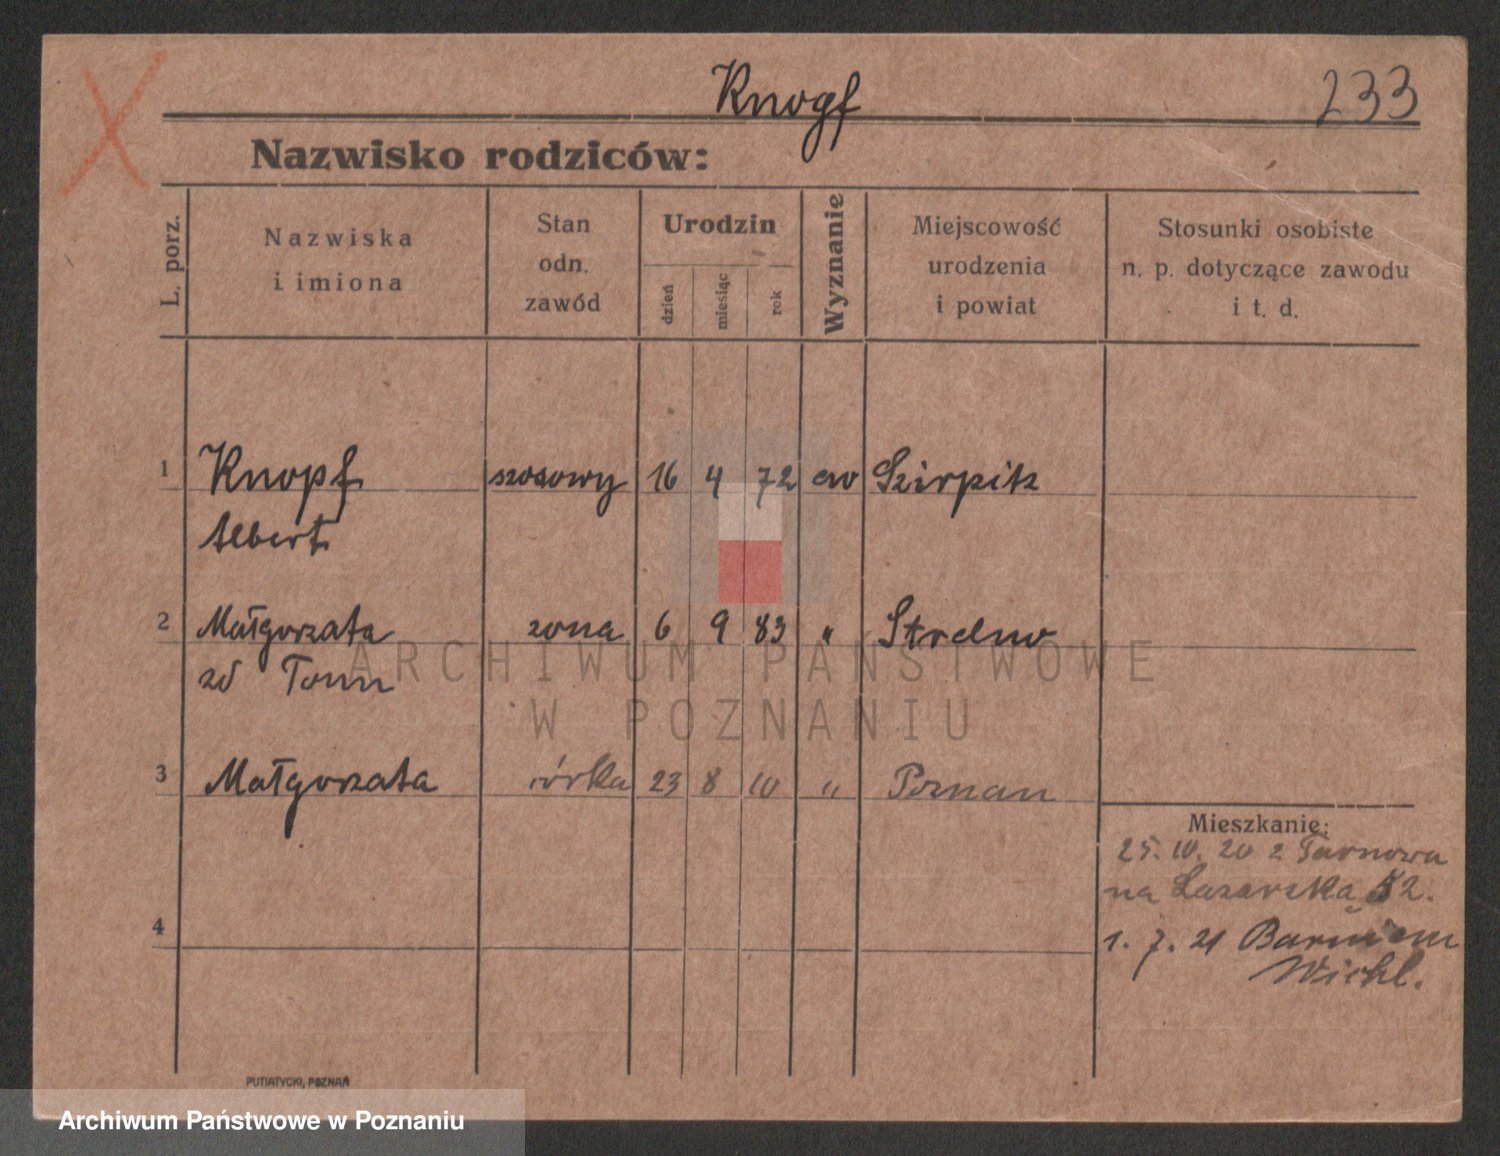 Knopf
233
Nazwisko rodziców:
L. porz.
Nazwiska
i imiona
Stan
odn.
zawód
Urodzin
dzień
miesiąc
rok
Wyznanie
Miejscowość
urodzenia
i powiat
Stosunki osobiste
n. p. dotyczące zawodu
i t. d.
1 Knopf szosowy 16 4 72 ew Szirpitz
Albert
2 Małgorzata zona 6 9 83 " Strelno
zd Tonn
3 Małgorzata córka 23 8 10 " Poznan
Mieszkanie:
25. 10. 20 z Tarnowa
na Lazarska 52.
4
1. 7. 21
PUTIATYCKI, POZNAŃ
ARCHIWUM PAŃSTWOWE
W POZNANIU
Archiwum Państwowe w Poznaniu